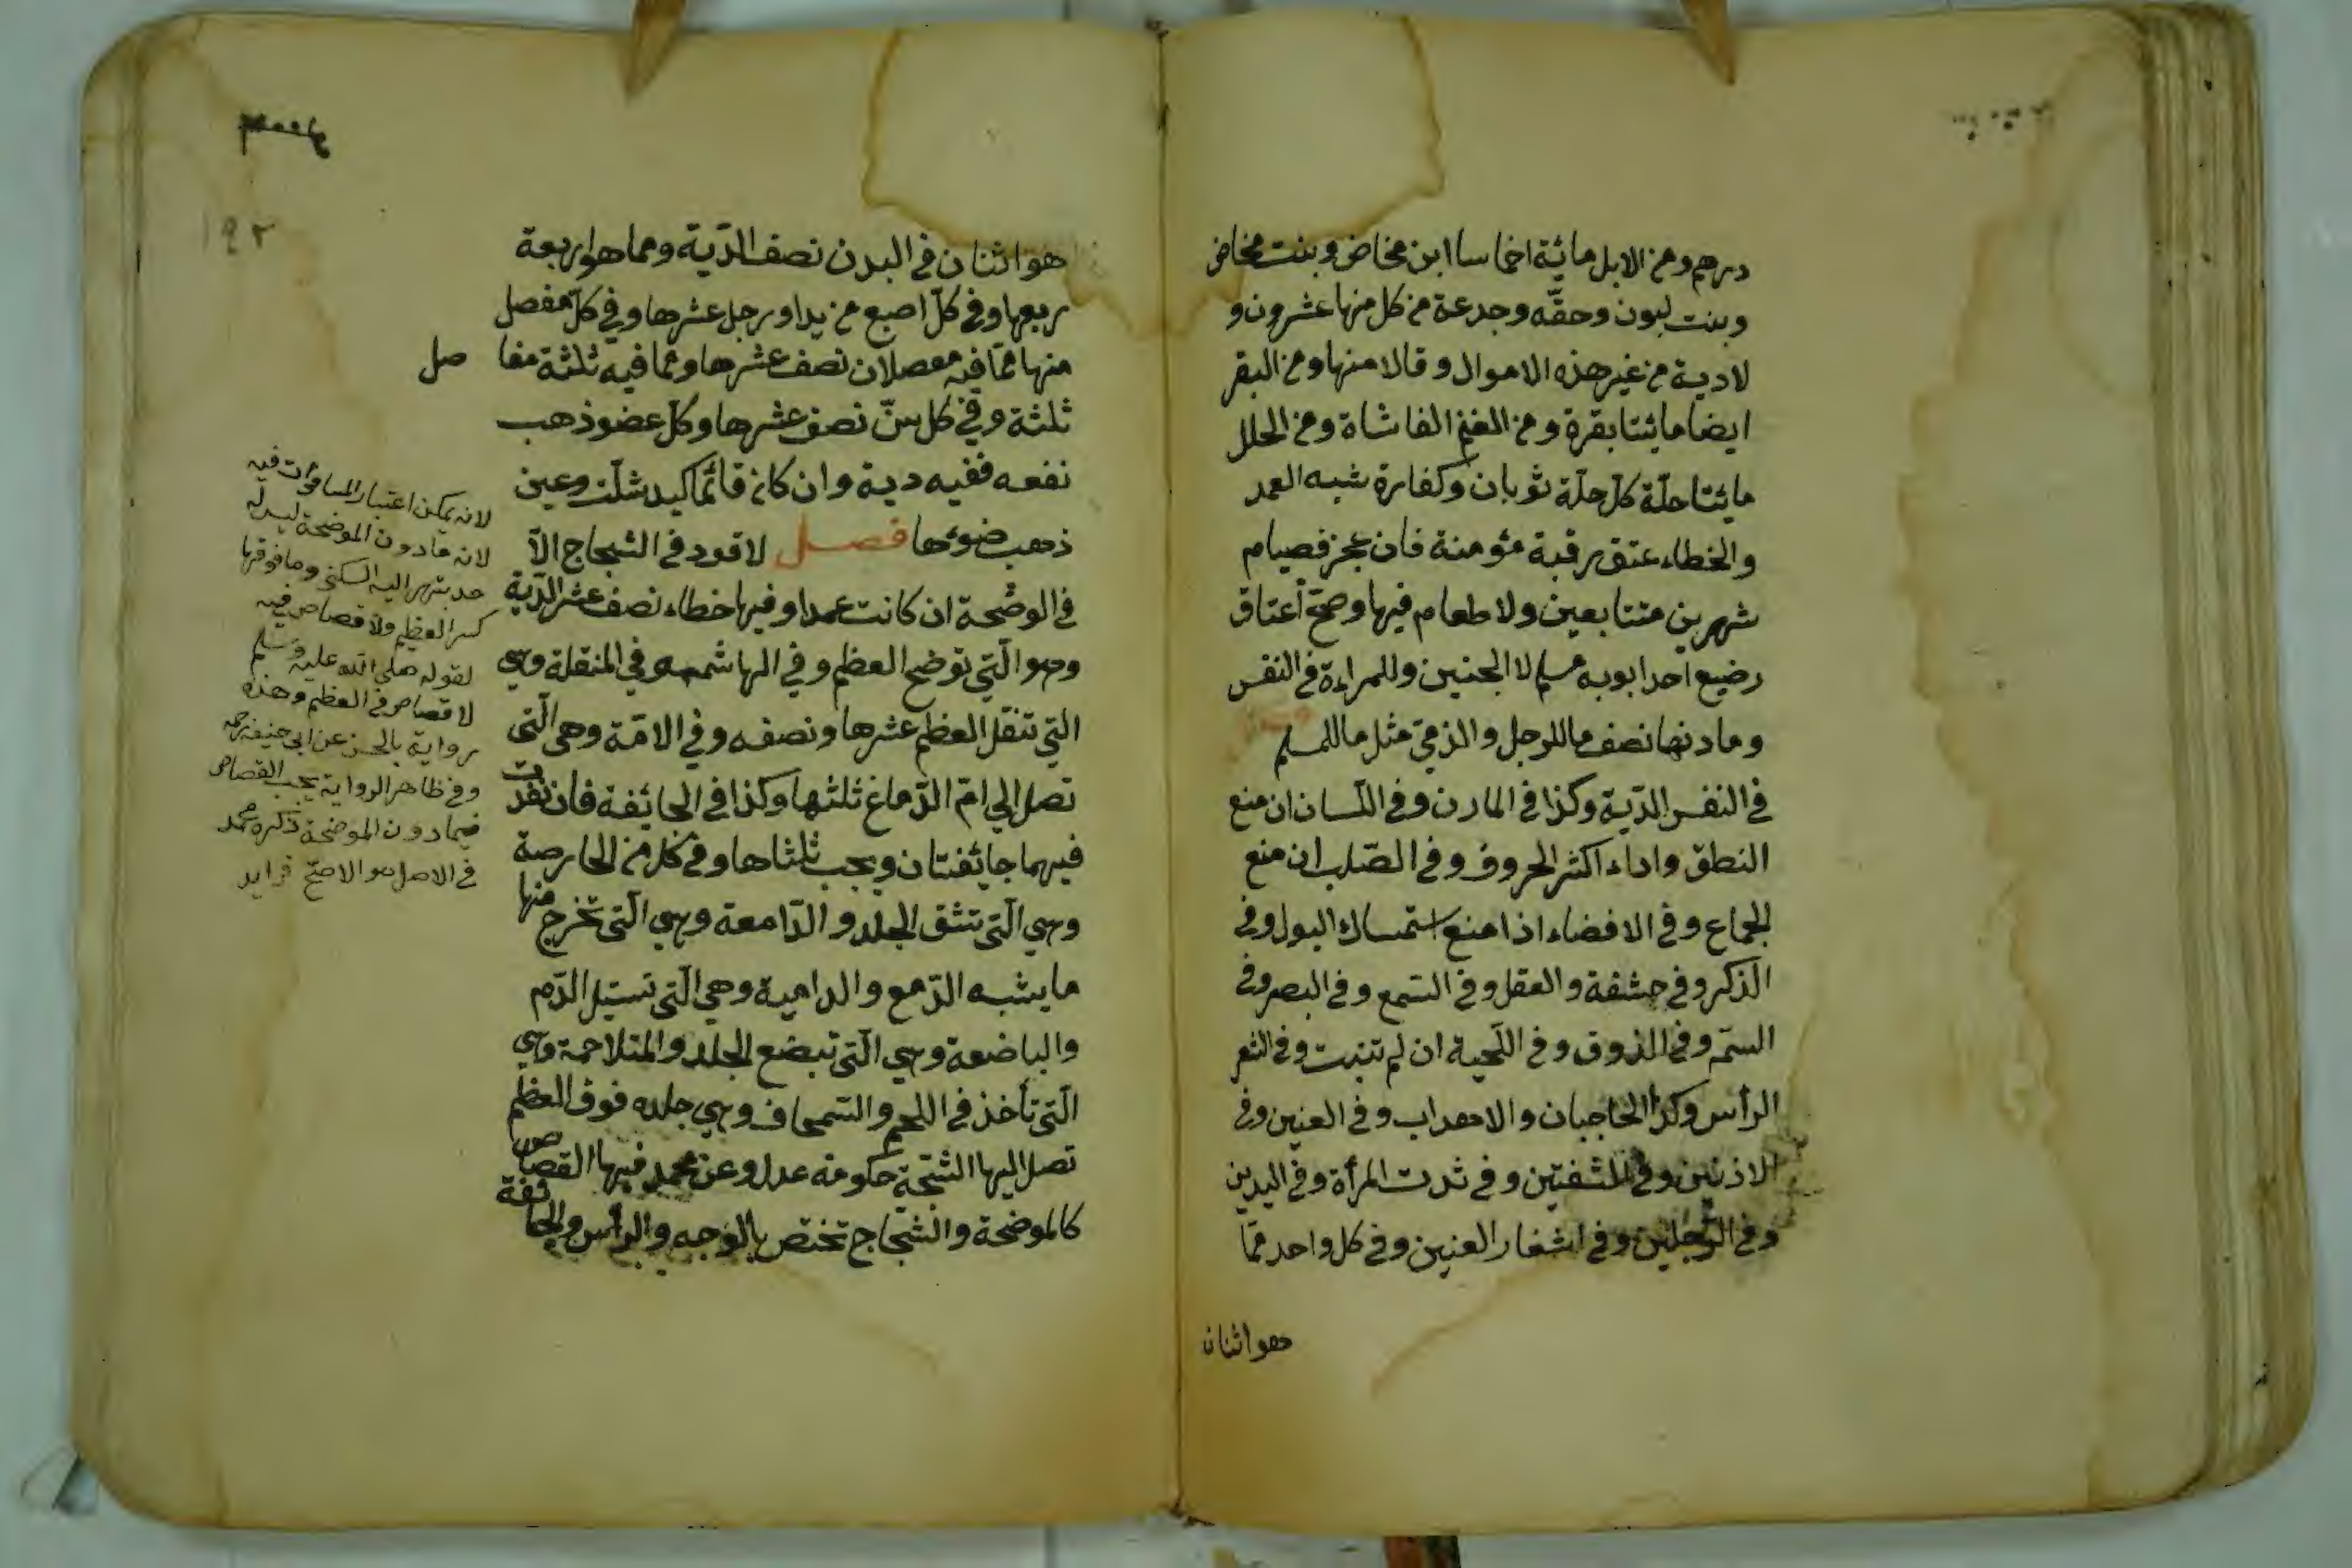 درهم ومن الابل مائة اخماسا ابن مخاض وبنت مخاض
وبنت لبون وحقّه وجدعة من كل منها عشرون و
لادية من غير هذه الاموال وقالا منها ومن البقر
ايضا مائتا بقرة ومن الغنم الفا شاة ومن الحلل
مائتا حلّة كلّ حلّة ثوبان وكفارة شبه العمد
والخطاء عتق رقبة مؤمنة فان عجز فصيام
شهرين متتابعين ولا طعام فيها وصحّ أعتاق
رضيع احد ابويه مسلم لا الجنين وللمراءة في النفس
وما دنها نصف ما للرجل والذمي مثل ما للمسلم
في النفس الدّية وكذا في المارن وفي اللّسان ان منع
النطق واداء اكثر الحروف وفي الصّلب ان منع
الجماع وفي الافضاء اذا منع استمساك البول وفي
الذكر وفي حشفة والعقل وفي السّمع وفي البصر وفي
الشمّ وفي الذوق وفي اللّحية ان لم تنبت وفي الشعر
الرأس وكذا الحاجبان والاهداب وفي العنين وفي
الاذنين وفي الشفتين وفي ثدت المرأة وفي اليدين
وفي الرجلين وفي اشفار العنين وفي كل واحد ممّا
هو اثنان
١٩٢
هو اثنان في البدن نصف الدّية ومما هو اربعة
ربعها وفي كلّ اصبع من يد او رجل عشرها وفي كلّ مفصل
منها ممّا فيه مفصلان نصف عشرها ومما فيه ثلثة مفا صل
ثلثة وفي كل سنّ نصف عشرها وكلّ عضو ذهب
نفعه ففيه دية وان كان قائما كيد شلّت وعين
ذهب ضوئها فصل لا قود في الشجاج الاّ
في الوضحة ان كانت عمدا وفيها خطاء نصف عشر الدّية
وهو الّتي توضح العظم وفي الهاشمه وفي المنقلة وهي
التي تنقل العظم عشرها ونصفه وفي الامّة وهي الّتي
تصل الي امّ الدّماغ ثلثها وكذا في الجائفة فان نفذت
فيهما جائفتان ويجب ثلثاها وفي كل من الحارصة
وهي الّتي تشق الجلد والدّامعة وهي الّتي تخرج منها
ما يشبه الدّمع والدامية وهي الّتي تسيل الدّم
والباضعة وهي الّتي تبضع الجلد والمتلاحمة وهي
الّتي تأخذ في اللحم والسّمحاف وهي جلده فوق العظم
تصل اليها الشجّة حكومة عدل وعن محمد فيها القصاص
كالموضحة والشجاج تختص بالوجه والرأس والجائفة
لانه يمكن اعتبار المساوات فيه
لانه ما دون الموضحة ليس له
حد ينتهي اليه السكين وما فوقها
كسر العظم ولا قصاص فيه
لقوله صلى الله عليه وسلم
لا قصاص في العظم وهذه
رواية بالحسن عن ابي حنيفة رحمه
وفي ظاهر الرواية يجب القصاص
فيما دون الموضحة ذكره محمد
في الاصل هو الاصحّ فرايد